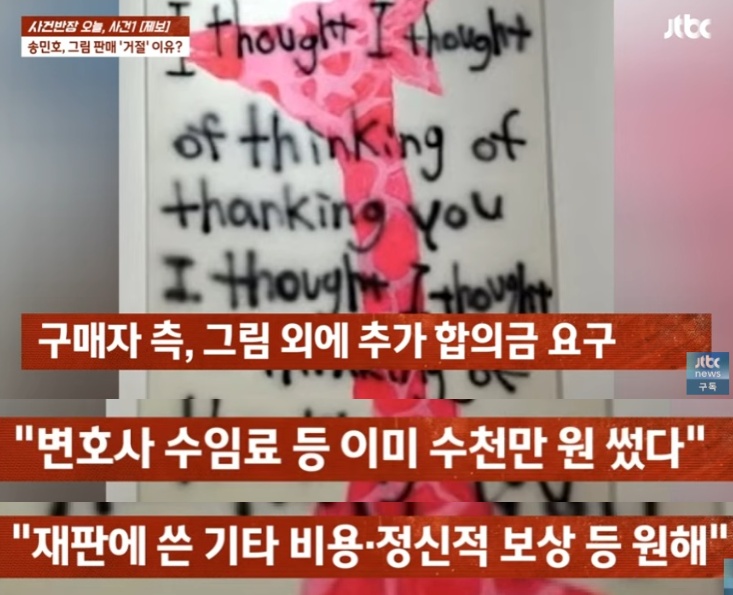 사건반장 오늘, 사건1 [제보]
송민호, 그림 판매 '거절' 이유?
jtbc
I thought I thought
of thinking of
thanking you
I. thought I thought
구매자 측, 그림 외에 추가 합의금 요구
jtbc
news
구독
thinking of
"변호사 수임료 등 이미 수천만 원 썼다"
"재판에 쓴 기타 비용·정신적 보상 등 원해"